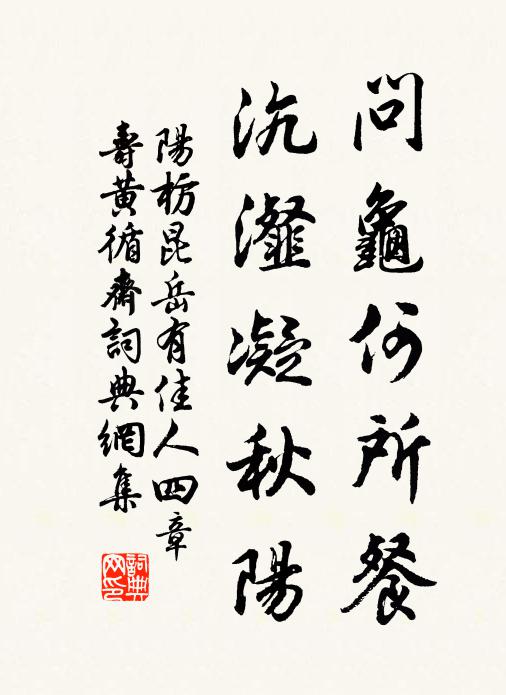 問龜何所餐
沆瀣凝秋陽
陽枋昆岳有佳人四章
壽黃循齋詞典網集
詞典網印